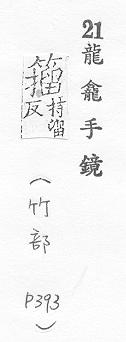 21龍龕手鏡
籀持溜反
(竹部 P393)